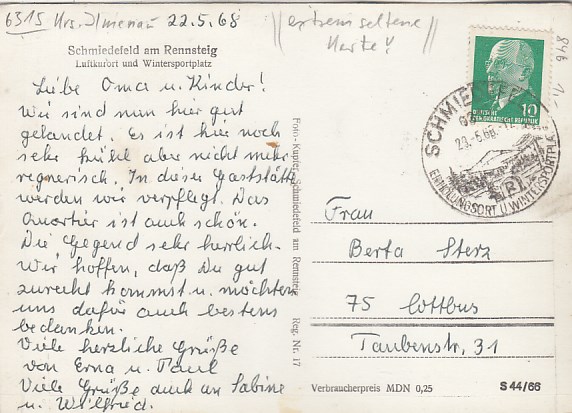 6315 Krs. Ilmenau 22.5.68
extrem seltene
Karte!
846
Schmiedefeld am Rennsteig
Luftkurort und Wintersportplatz
Liebe Oma u. Kinder!
Wir sind nun hier gut
gelandet. Es ist hier noch
sehr kühl aber nicht mehr
regnerisch. In dieser Gaststätte
werden wir verpflegt. Das
Quartier ist auch schön.
Die Gegend sehr herrlich.
Wir hoffen, daß Du gut
zurecht kommst u. möchten
uns dafür auch bestens
bedanken.
Viele herzliche Grüße
von Erna u. Paul
Viele Grüße auch an Sabine
u. Wilfried.
Foto-Kupfer, Schmiedefeld am Rennsteig Reg. Nr. 17
10
DEUTSCHE
DEMOKRATISCHE REPUBLIK
SCHMIEDEFELD
ERHOLUNGSORT U. WINTERSPORTPL
Frau
Berta Sterz
75 Cottbus
Taubenstr. 31
Verbraucherpreis MDN 0,25
S 44/66